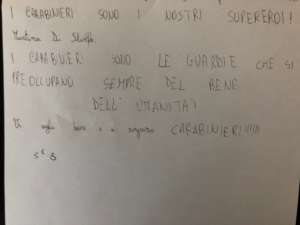 I CARABINIERI SONO I NOSTRI SUPEREROI!
Martina Di
I CARABINIERI SONO LE GUARDIE CHE SI
PREOCCUPANO SEMPRE DEL BENE
DELL'UMANITA'!
Vi voglio bene e vi CARABINIERI!!!!!
5ª B